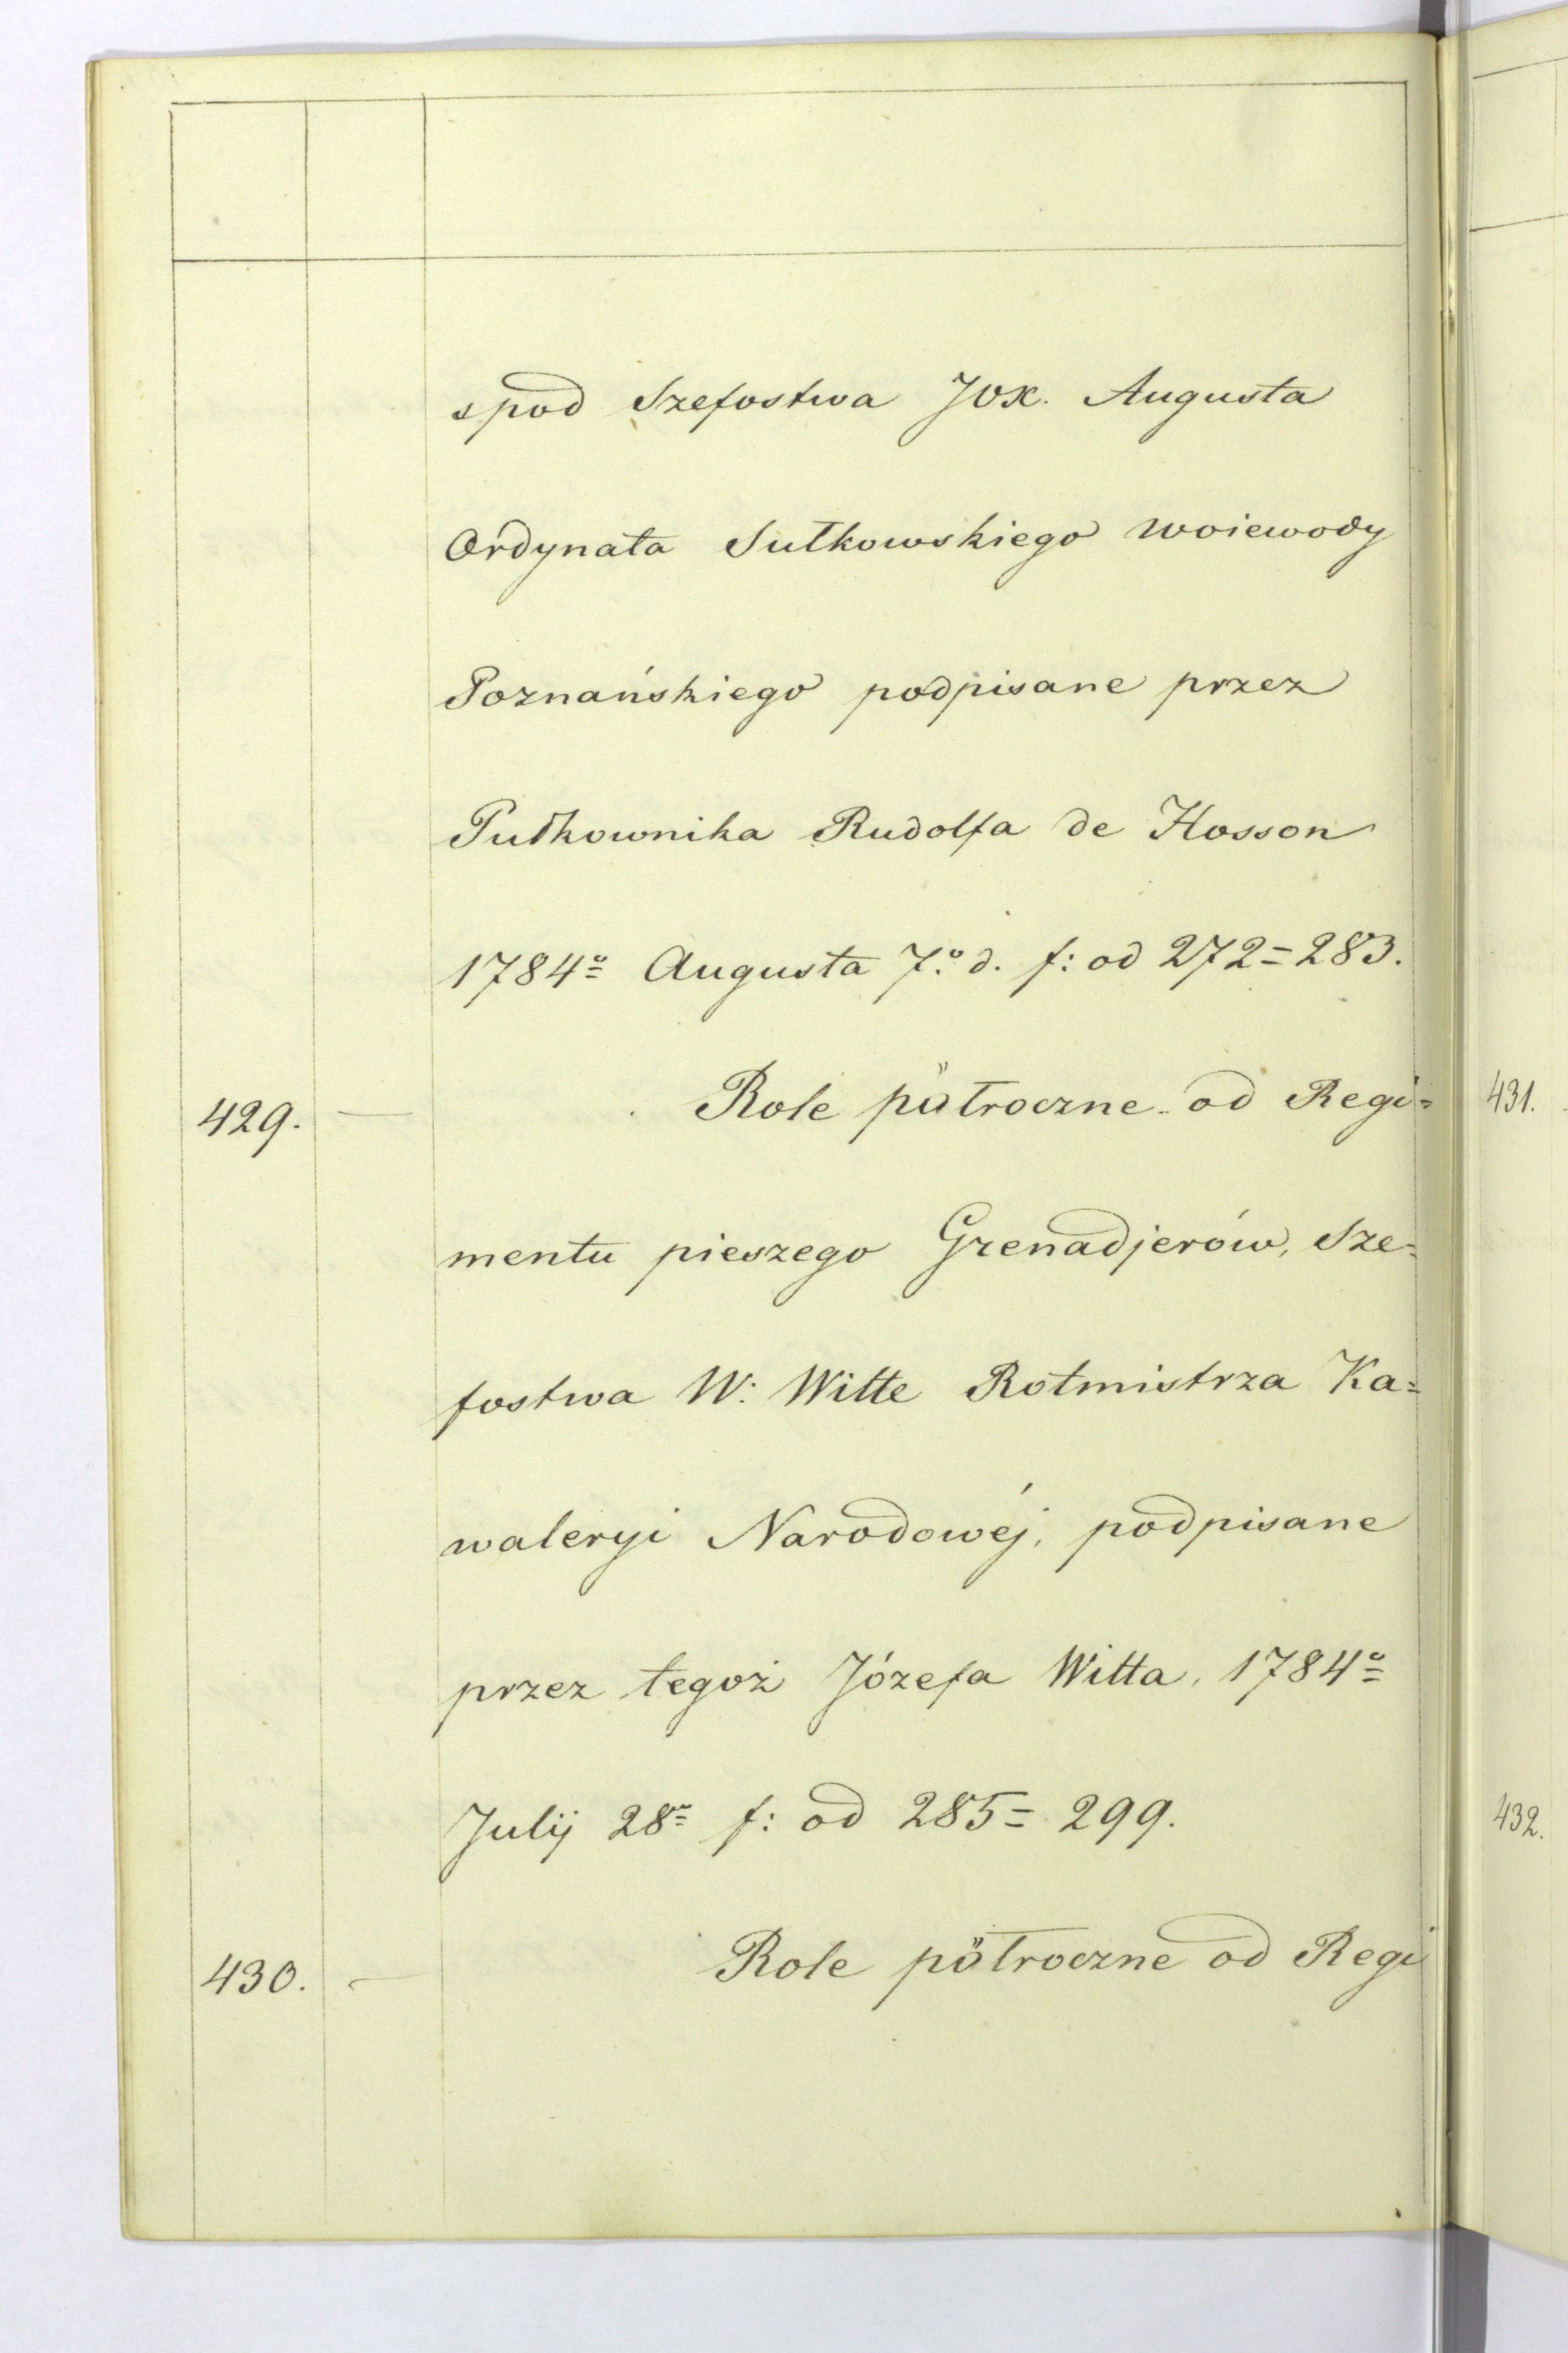 spod Szefostwa JOX. Augusta
Ordynata Sułkowskiego Woiewody
Poznańskiego podpisane przez
Pułkownika Rudolfa de Hosson
1784º Augusta 7.º d. f: od 272=283.
429. — Role pułroczne od Regi=
mentu pieszego Grenadjerów, Sze=
fostwa W: Witte Rotmistrza Ka=
waleryi Narodowéj, podpisane
przez tegoż Józefa Witta, 1784º
Julij 28º f: od 285= 299.
430. — Role półroczne od Regi
431.
432.